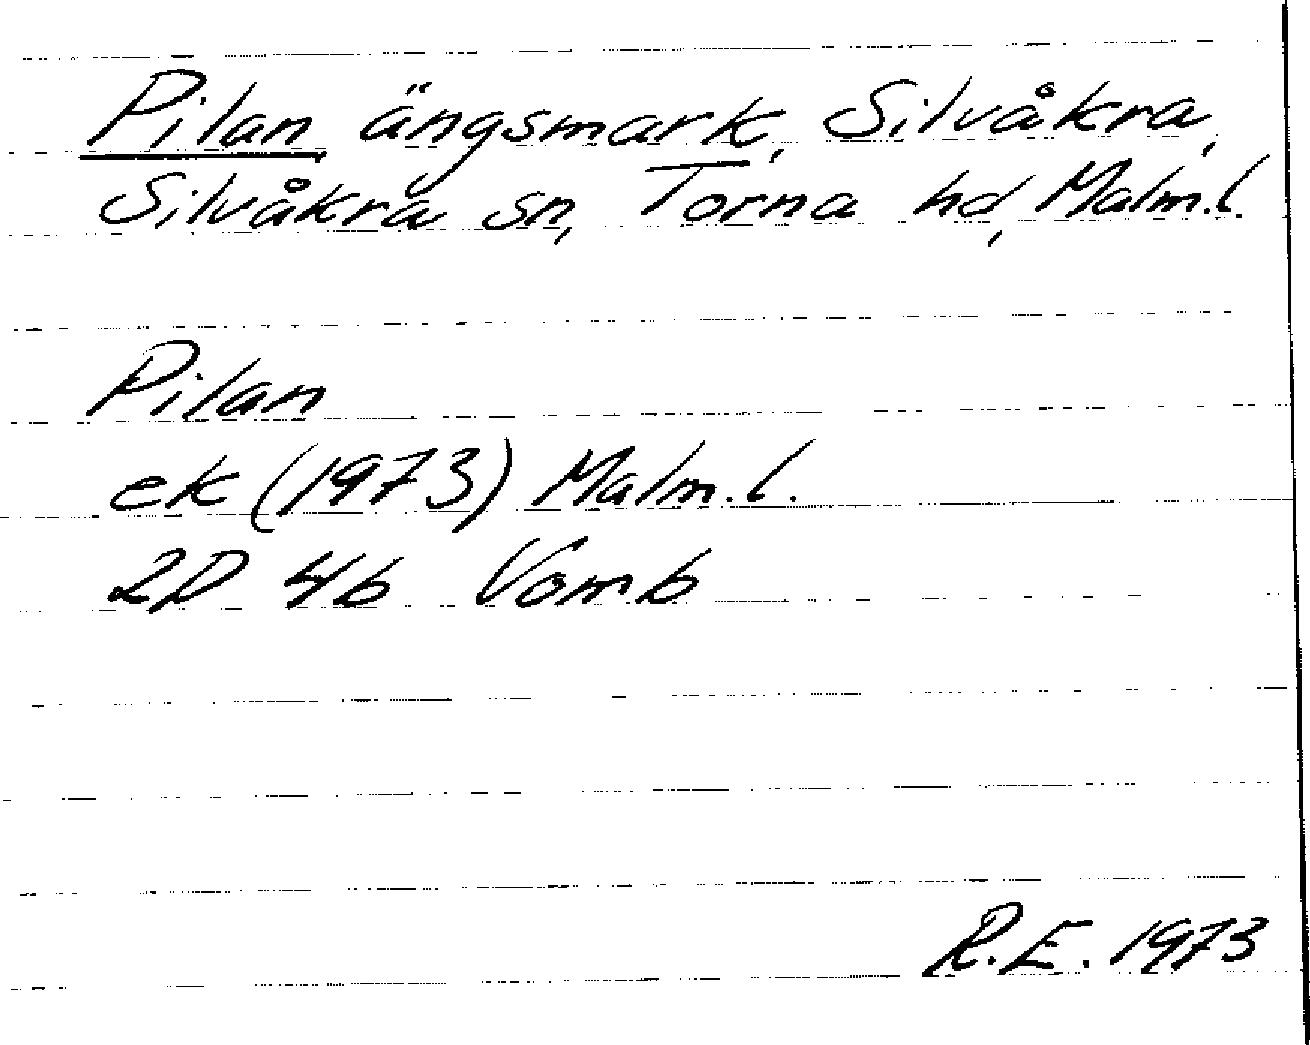 Pilan, ängsmark, Silvåkra,
Silvåkra sn, Torna hd, Malm.l.
Pilan
ek (1973) Malm.l.
2D 4b Vomb
R.E. 1973